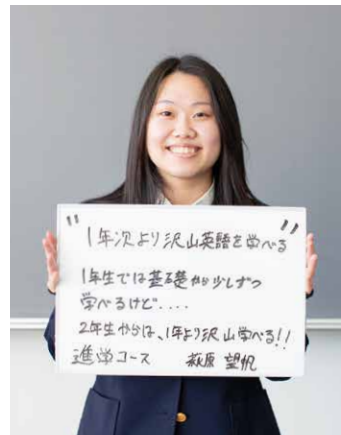 " 1年次より沢山英語を学べる "
1年生では基礎から少しずつ
学べるけど....
2年生からは、1年より沢山学べる!!
進学コース 萩原 望帆